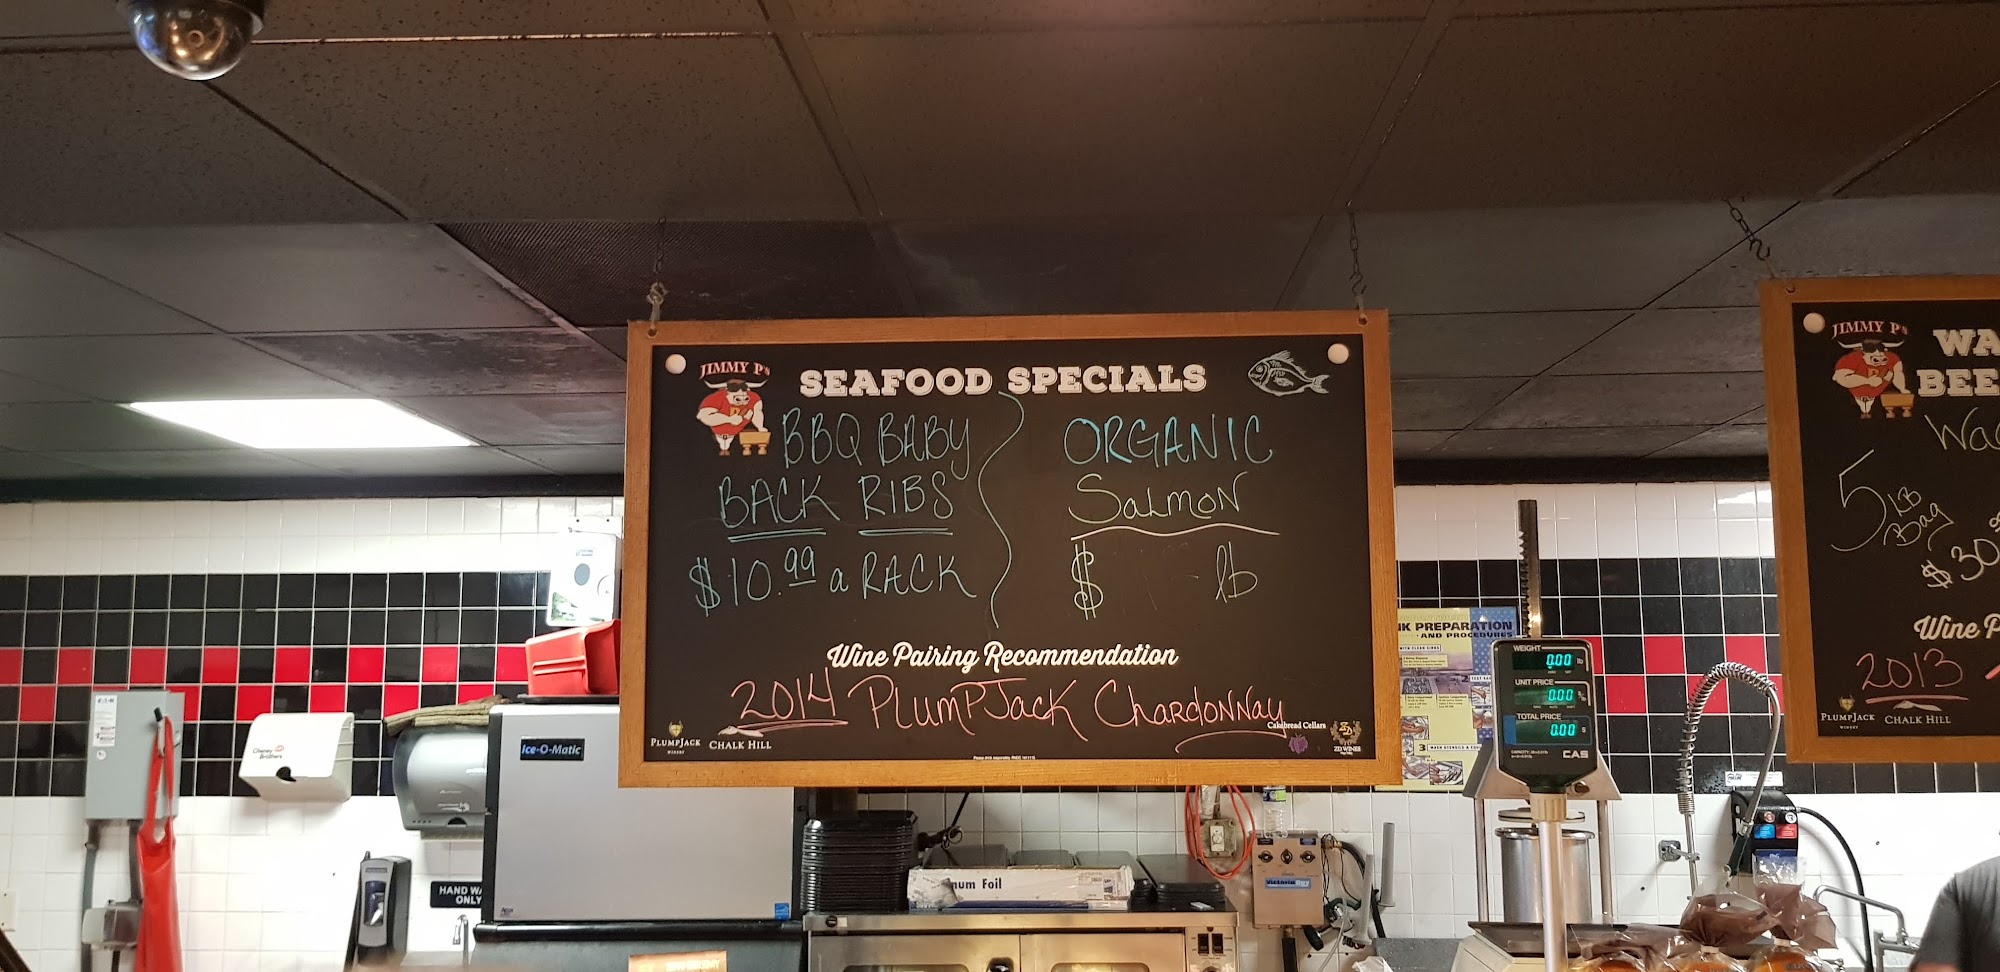 JIMMY P's
SEAFOOD SPECIALS
BBQ BABY
BACK RIBS
$10.99 a RACK
ORGANIC
SALMON
$ lb
Wine Pairing Recommendation
2014 PlumpJack Chardonnay
PLUMPJACK
WINERY
CHALK HILL
Cakebread Cellars
ZD WINES
JIMMY P's
WA
BEE
Wa
5 LB
Bag
$30
Wine P
2013
PLUMPJACK
WINERY
CHALK HILL
NK PREPARATION
AND PROCEDURES
WEIGHT
0.00 lb
UNIT PRICE
0.00
TOTAL PRICE
0.00 $
CAS
Ice-O-Matic
Cheney
Brothers
HAND WA
ONLY
num Foil